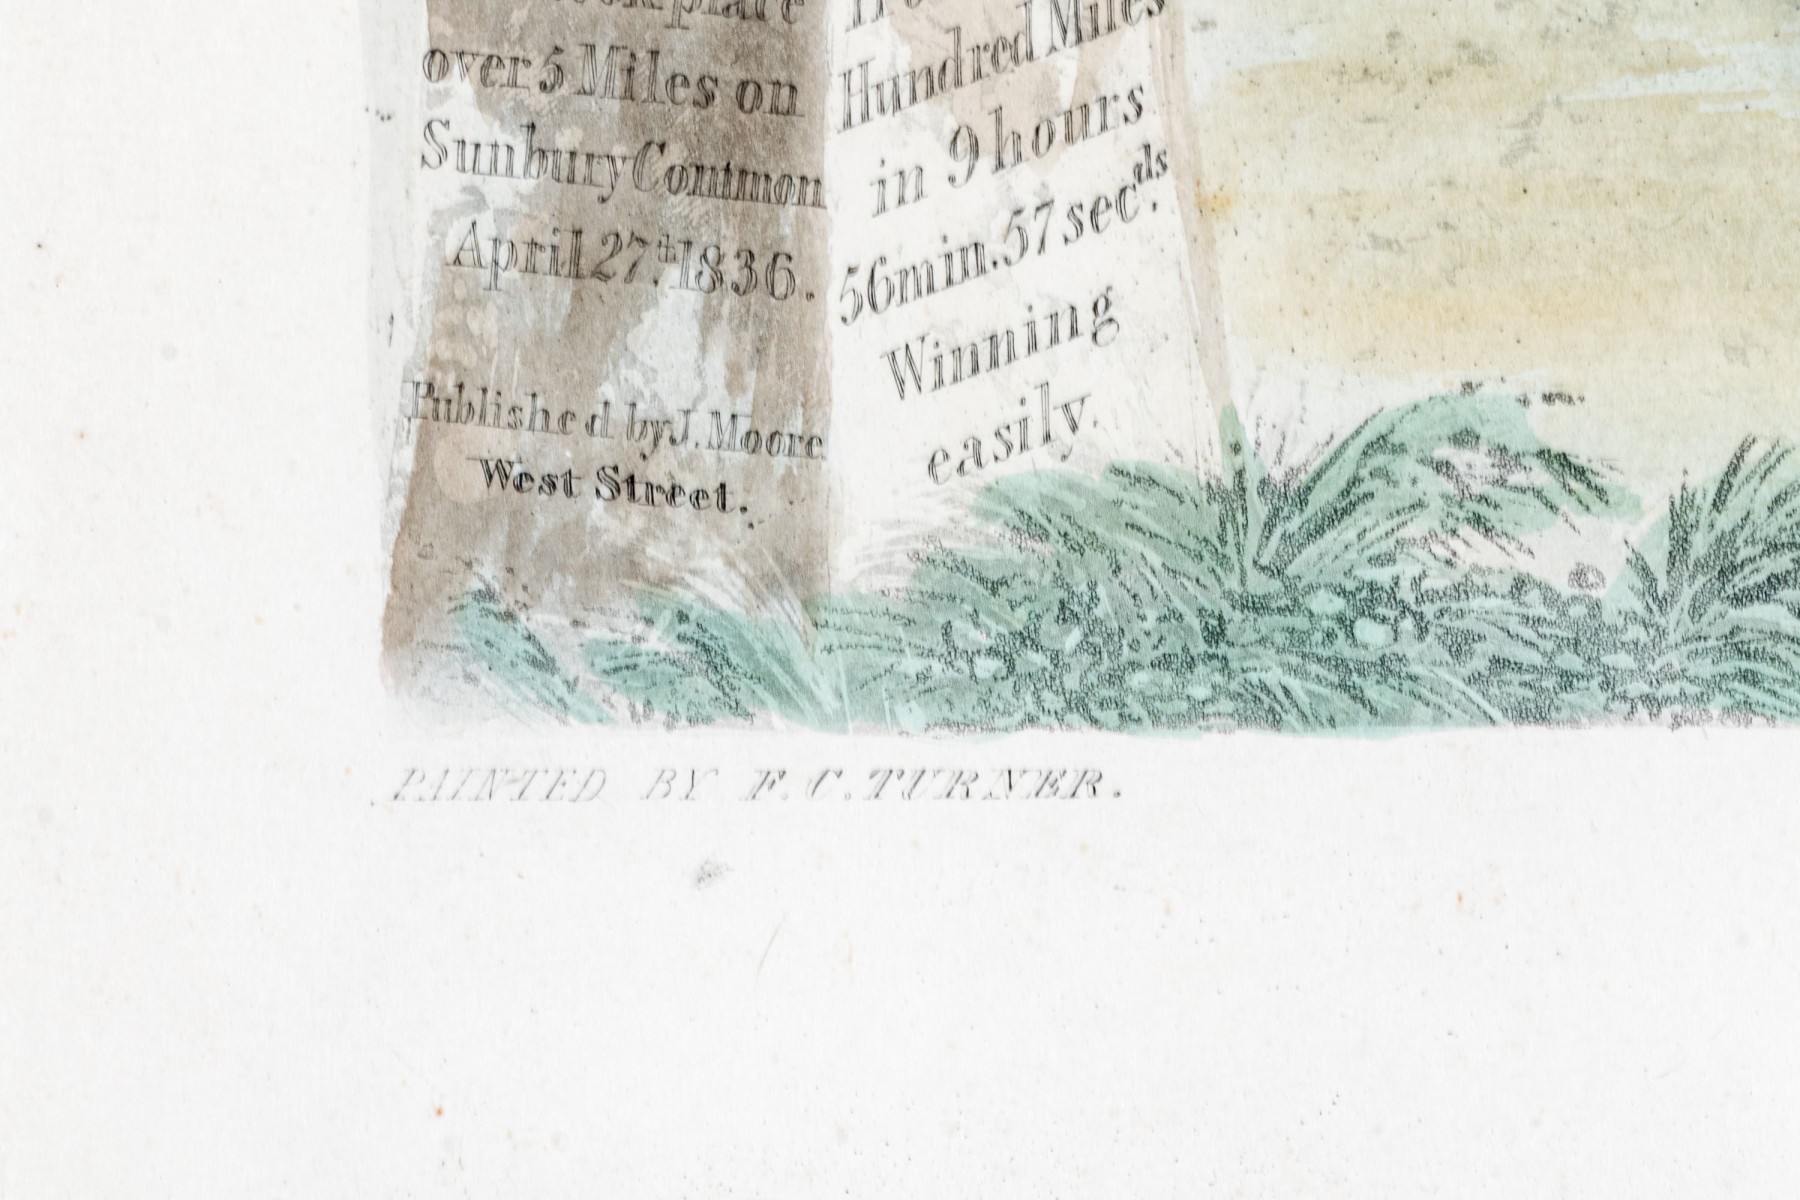 place
over 5 Miles on
Sunbury Common
April 27.th 1836.
Published by J. Moore
West Street.
Hundred Miles
in 9 hours
56 min. 57 sec.ds
Winning
easily.
PAINTED BY F. C. TURNER.